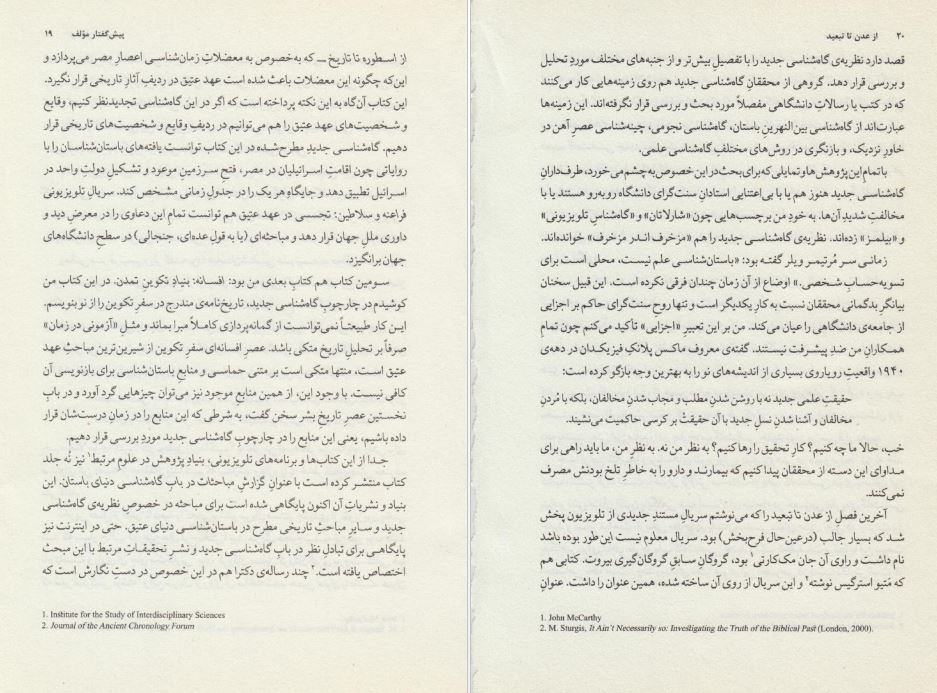 پیش‌گفتار مؤلف ۱۹
از اسطوره تا تاریخ ــ که به‌خصوص به معضلاتِ زمان‌شناسیِ اعصارِ مصر می‌پردازد و
این‌که چگونه این معضلات باعث شده است عهد عتیق در ردیفِ آثارِ تاریخی قرار نگیرد.
این کتاب آن‌گاه به این نکته پرداخته است که اگر در این گاه‌شناسی تجدیدنظر کنیم، وقایع
و شخصیت‌های عهد عتیق را هم می‌توانیم در ردیفِ وقایع و شخصیت‌های تاریخی قرار
دهیم. گاه‌شناسیِ جدیدِ مطرح‌شده در این کتاب توانست یافته‌های باستان‌شناسان را با
روایاتی چون اقامتِ اسرائیلیان در مصر، فتحِ سرزمینِ موعود و تشکیلِ دولتِ واحد در
اسرائیل تطبیق دهد و جایگاهِ هر یک را در جدولِ زمانی مشخص کند. سریالِ تلویزیونی
فراعنه و سلاطین: تجسسی در عهد عتیق هم توانست تمامِ این دعاوی را در معرضِ دید و
داوری مللِ جهان قرار دهد و مباحثه‌ای (یا به قولِ عده‌ای، جنجالی) در سطحِ دانشگاه‌های
جهان برانگیزد.
سومین کتاب هم کتابِ بعدی من بود: افسانه: بنیادِ تکوینِ تمدن. در این کتاب من
کوشیدم در چارچوبِ گاه‌شناسی جدید، تاریخ‌نامه‌ی مندرج در سفرِ تکوین را از نو بنویسم.
این کار طبیعتاً نمی‌توانست از گمانه‌پردازی کاملاً مبرا بماند و مثلِ «آزمونی در زمان»
صرفاً بر تحلیلِ تاریخ متکی باشد. عصرِ افسانه‌ای سفرِ تکوین از شیرین‌ترین مباحثِ عهد
عتیق است، منتها متکی است بر متنی حماسی و منابعِ باستان‌شناسی برای بازنویسی آن
کافی نیست. با وجود این، از همین منابعِ موجود نیز می‌توان چیزهایی گرد آورد و در بابِ
نخستین عصرِ تاریخِ بشر سخن گفت، به شرطی که این منابع را در زمانِ درست‌شان قرار
داده باشیم، یعنی این منابع را در چارچوبِ گاه‌شناسی جدید موردِ بررسی قرار دهیم.
جدا از این کتاب‌ها و برنامه‌های تلویزیونی، بنیادِ پژوهش در علومِ مرتبط۱ نیز نُه جلد
کتاب منتشر کرده است با عنوانِ گزارشِ مباحثات در بابِ گاه‌شناسی دنیای باستان. این
بنیاد و نشریاتِ آن اکنون پایگاهی شده است برای مباحثه در خصوصِ نظریه‌ی گاه‌شناسی
جدید و سایرِ مباحثِ تاریخی مطرح در باستان‌شناسی دنیای عتیق. حتی در اینترنت نیز
پایگاهی برای تبادلِ نظر در بابِ گاه‌شناسی جدید و نشرِ تحقیقاتِ مرتبط با این مبحث
اختصاص یافته است.۲ چند رساله‌ی دکترا هم در این خصوص در دستِ نگارش است که
1. Institute for the Study of Interdisciplinary Sciences
2. Journal of the Ancient Chronology Forum
۲۰ از عدن تا تبعید
قصد دارد نظریه‌ی گاه‌شناسی جدید را با تفصیلِ بیش‌تر و از جنبه‌های مختلف موردِ تحلیل
و بررسی قرار دهد. گروهی از محققانِ گاه‌شناسی جدید هم روی زمینه‌هایی کار می‌کنند
که در کتب یا رسالاتِ دانشگاهی مفصلاً مورد بحث و بررسی قرار نگرفته‌اند. این زمینه‌ها
عبارت‌اند از گاه‌شناسی بین‌النهرینِ باستان، گاه‌شناسی نجومی، چینه‌شناسی عصرِ آهن در
خاورِ نزدیک، و بازنگری در روش‌های مختلفِ گاه‌شناسی علمی.
با تمامِ این پژوهش‌ها و تمایلی که برای بحث در این خصوص به چشم می‌خورد، طرف‌دارانِ
گاه‌شناسی جدید هنوز هم یا با بی‌اعتنایی استادانِ سنت‌گرای دانشگاه روبه‌رو هستند یا با
مخالفتِ شدیدِ آن‌ها. به خودِ من برچسب‌هایی چون «شارلاتان» و «گاه‌شناسِ تلویزیونی»
و «بیلمز» زده‌اند. نظریه‌ی گاه‌شناسی جدید را هم «مزخرف اندر مزخرف» خوانده‌اند.
زمانی سر مُرتیمر ویلر گفته بود: «باستان‌شناسی علم نیست، محلی است برای
تسویه‌حسابِ شخصی.» اوضاع از آن زمان چندان فرقی نکرده است. این قبیل سخنان
بیانگرِ بدگمانی محققان نسبت به کارِ یکدیگر است و تنها روحِ سنت‌گرای حاکم بر اجزایی
از جامعه‌ی دانشگاهی را عیان می‌کند. من بر این تعبیرِ «اجزایی» تأکید می‌کنم چون تمامِ
همکارانِ من ضدِ پیشرفت نیستند. گفته‌ی معروف ماکس پلانکِ فیزیکدان در دهه‌ی
۱۹۴۰ واقعیتِ رویاروی بسیاری از اندیشه‌های نو را به بهترین وجه بازگو کرده است:
حقیقتِ علمی جدید نه با روشن شدنِ مطلب و مجاب شدنِ مخالفان، بلکه با مُردنِ
مخالفان و آشنا شدنِ نسلِ جدید با آن حقیقتْ بر کرسی حاکمیت می‌نشیند.
خب، حالا ما چه کنیم؟ کارِ تحقیق را رها کنیم؟ به نظرِ من نه. به نظرِ من، ما باید راهی برای
مداوای این دسته از محققان پیدا کنیم که بیمارند و دارو را به خاطرِ تلخ بودنش مصرف
نمی‌کنند.
آخرین فصلِ از عدن تا تبعید را که می‌نوشتم سریالِ مستندِ جدیدی از تلویزیون پخش
شد که بسیار جالب (درعین‌حال فرح‌بخش) بود. سریالِ معلوم نیست این طور بوده باشد
نام داشت و راوی آن جان مک‌کارتی۱ بود، گروگانِ سابقِ گروگان‌گیری بیروت. کتابی هم
که مَتیو استرگیس نوشته۲ و این سریال از روی آن ساخته شده، همین عنوان را داشت. عنوانِ
1. John McCarthy
2. M. Sturgis, It Ain't Necessarily so: Investigating the Truth of the Biblical Past (London, 2000).